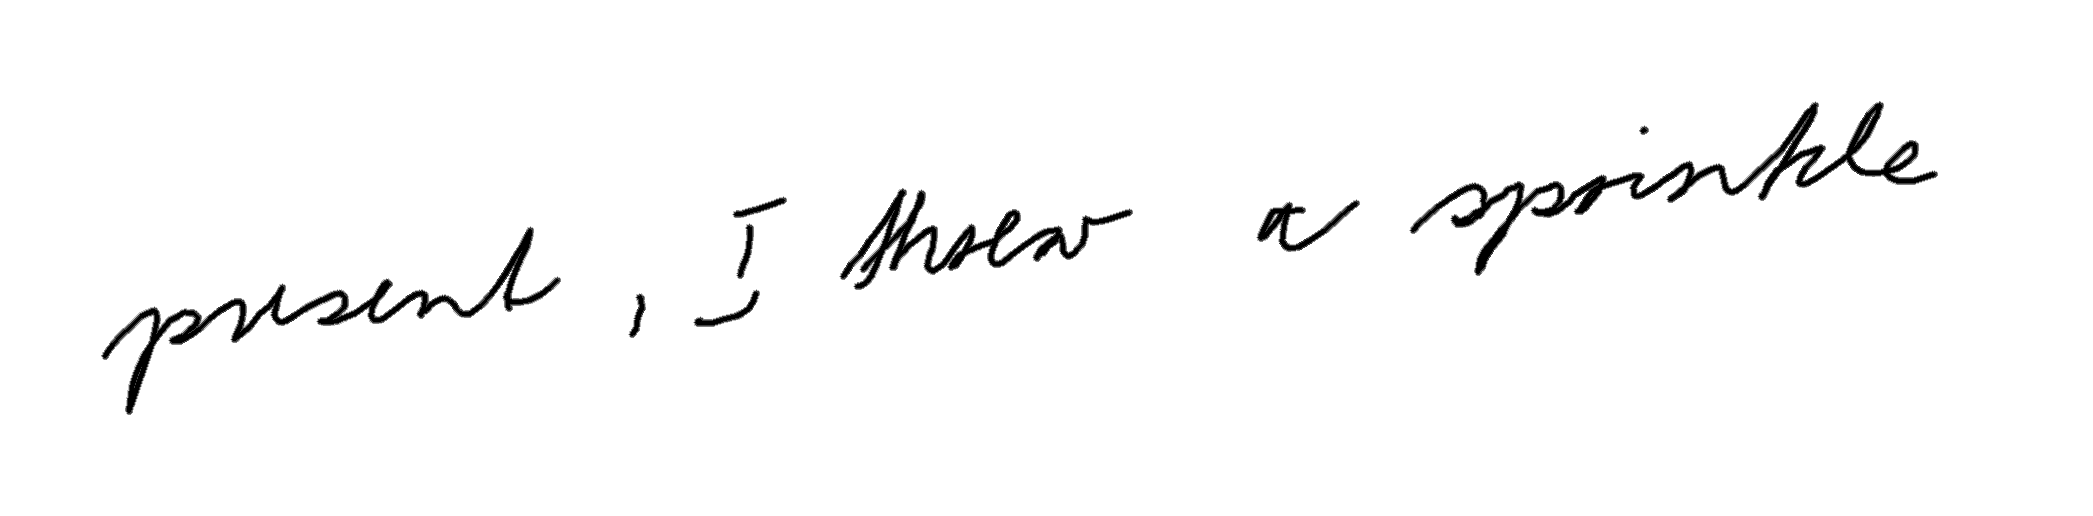 present, I threw a sprinkle